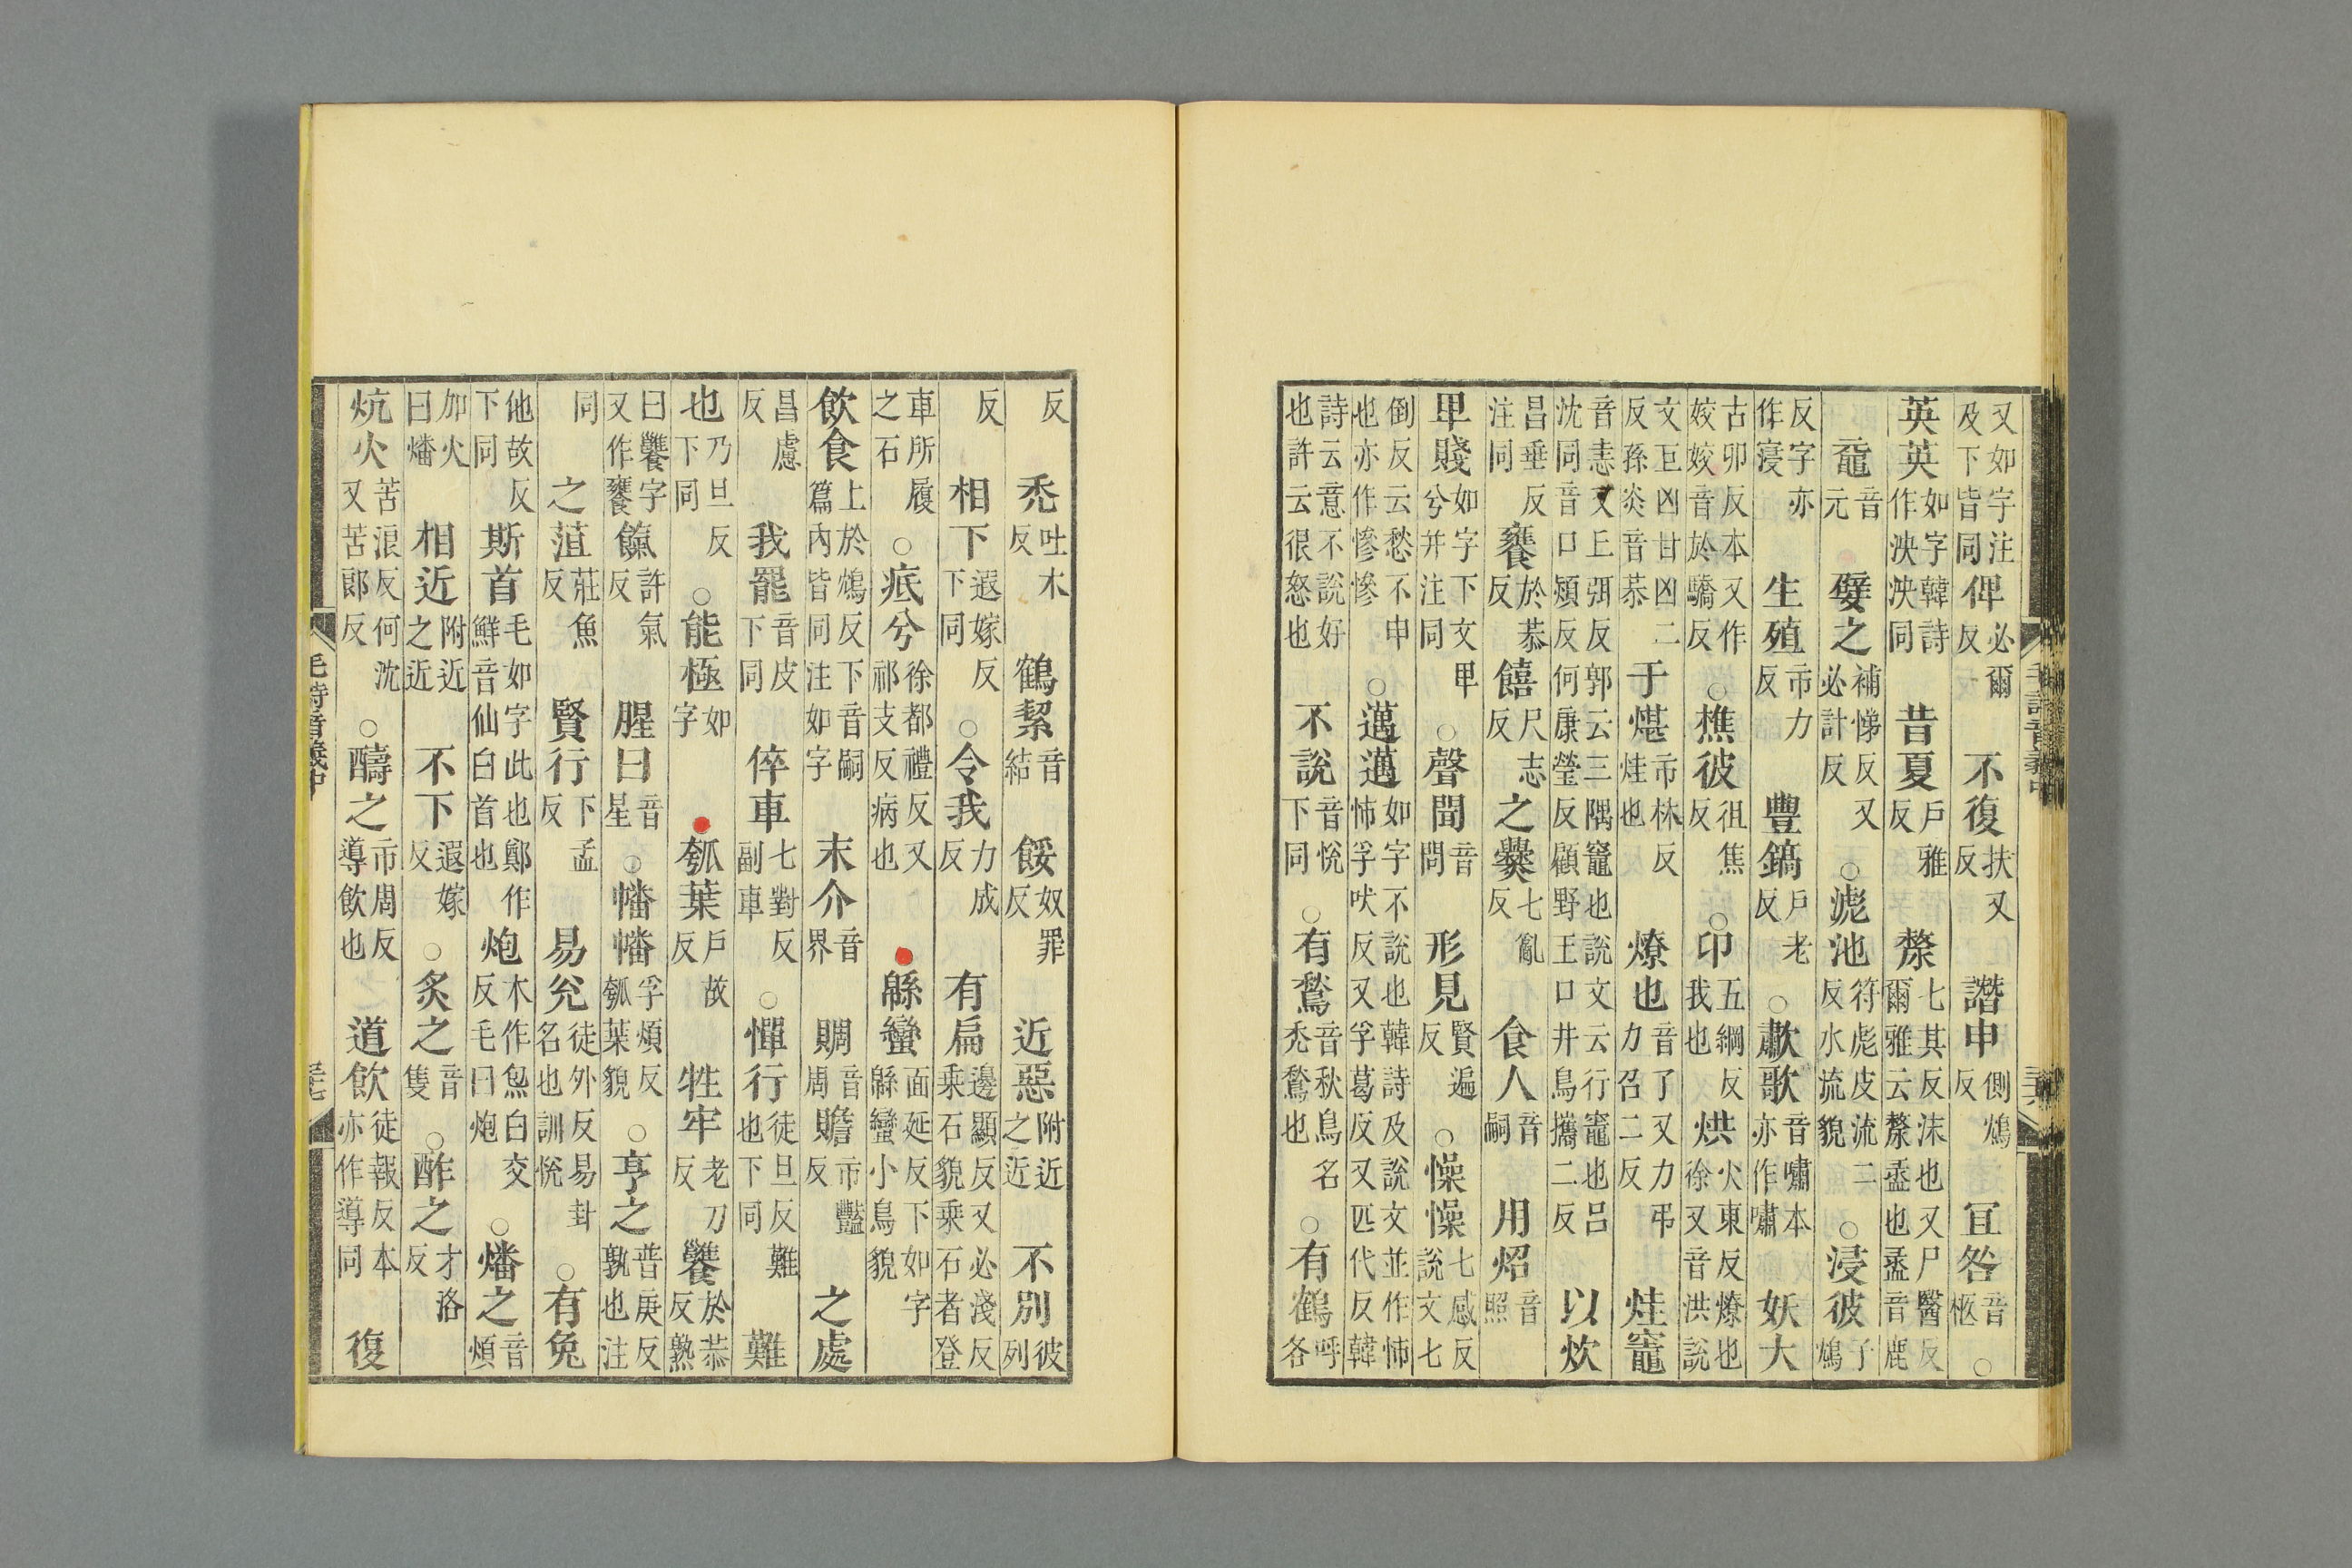 又如字注及下皆同俾必爾反不復扶又反譖申側鴆反冝咎音柩○
英英如字韓詩作泱泱同昔夏戶雅反漦七其反沫也又尸醫反爾雅云漦盝也盝音鹿
黿音元嬖之補悌反又必計反○滮池符彪皮流二反水流貌○浸彼子鴆
反字亦作寖生殖市力反豐鎬戶老反○歗歌音嘯本亦作嘯妖大
古卯反本又作姣姣音於驕反○樵彼徂焦反○卬五綱反我也烘火東反燎也徐又音洪說
文巨凶甘凶二反孫炎音恭于煁市林反烓也燎也音了又力弔力召二反烓竈
音恚又丘弭反郭云三隅竈也說文云行竈也呂沈同音口熲反何康瑩反顧野王口井烏攜二反以炊
昌垂反注同饔於恭反饎尺志反之爨七亂反食人音嗣用炤音照
卑賤如字下文卑兮并注同○聲聞音問形見賢遍反○懆懆七感反說文七
倒反云愁不申也亦作慘慘○邁邁如字不說也韓詩及說文並作怖怖孚吠反又孚葛反又匹代反韓
詩云意不說好也許云很怒也不說音悅下同○有鶖音秋鳥名禿鶖也○有鶴呼各
反禿吐木反鶴絜音結餒奴罪反近惡附近之近不別彼列
反相下遐嫁反下同○令我力成反有扁邊顯反又必淺反乘石貌乘石者登
車所履之石○疷兮徐都禮反又祁支反病也緜蠻面延反下如字緜蠻小鳥貌
飲食上於鴆反下音嗣篇內皆同注如字末介音界賙音周贍市豔反之處
昌慮反我罷音皮下同倅車七對反副車○憚行徒旦反難也下同難
也乃旦反下同○能極如字瓠葉戶故反牲牢老刀反饔於恭反熟
曰饔字又作饔餼許氣反腥曰音星○幡幡孚煩反瓠葉貌○亨之普庚反孰也注
同之菹莊魚反賢行下孟反易兌徒外反易卦名也訓悅○有兔
他故反下同斯首毛如字此也鄭作鮮音仙白首也炮木作炰白交反毛曰炮○燔之音煩
加火曰燔相近附近之近不下遐嫁反○炙之音隻○酢之才洛反
炕火苦浪反何沈又苦郎反○醻之市周反導飲也道飲徒報反本亦作導同復
毛詩音義中